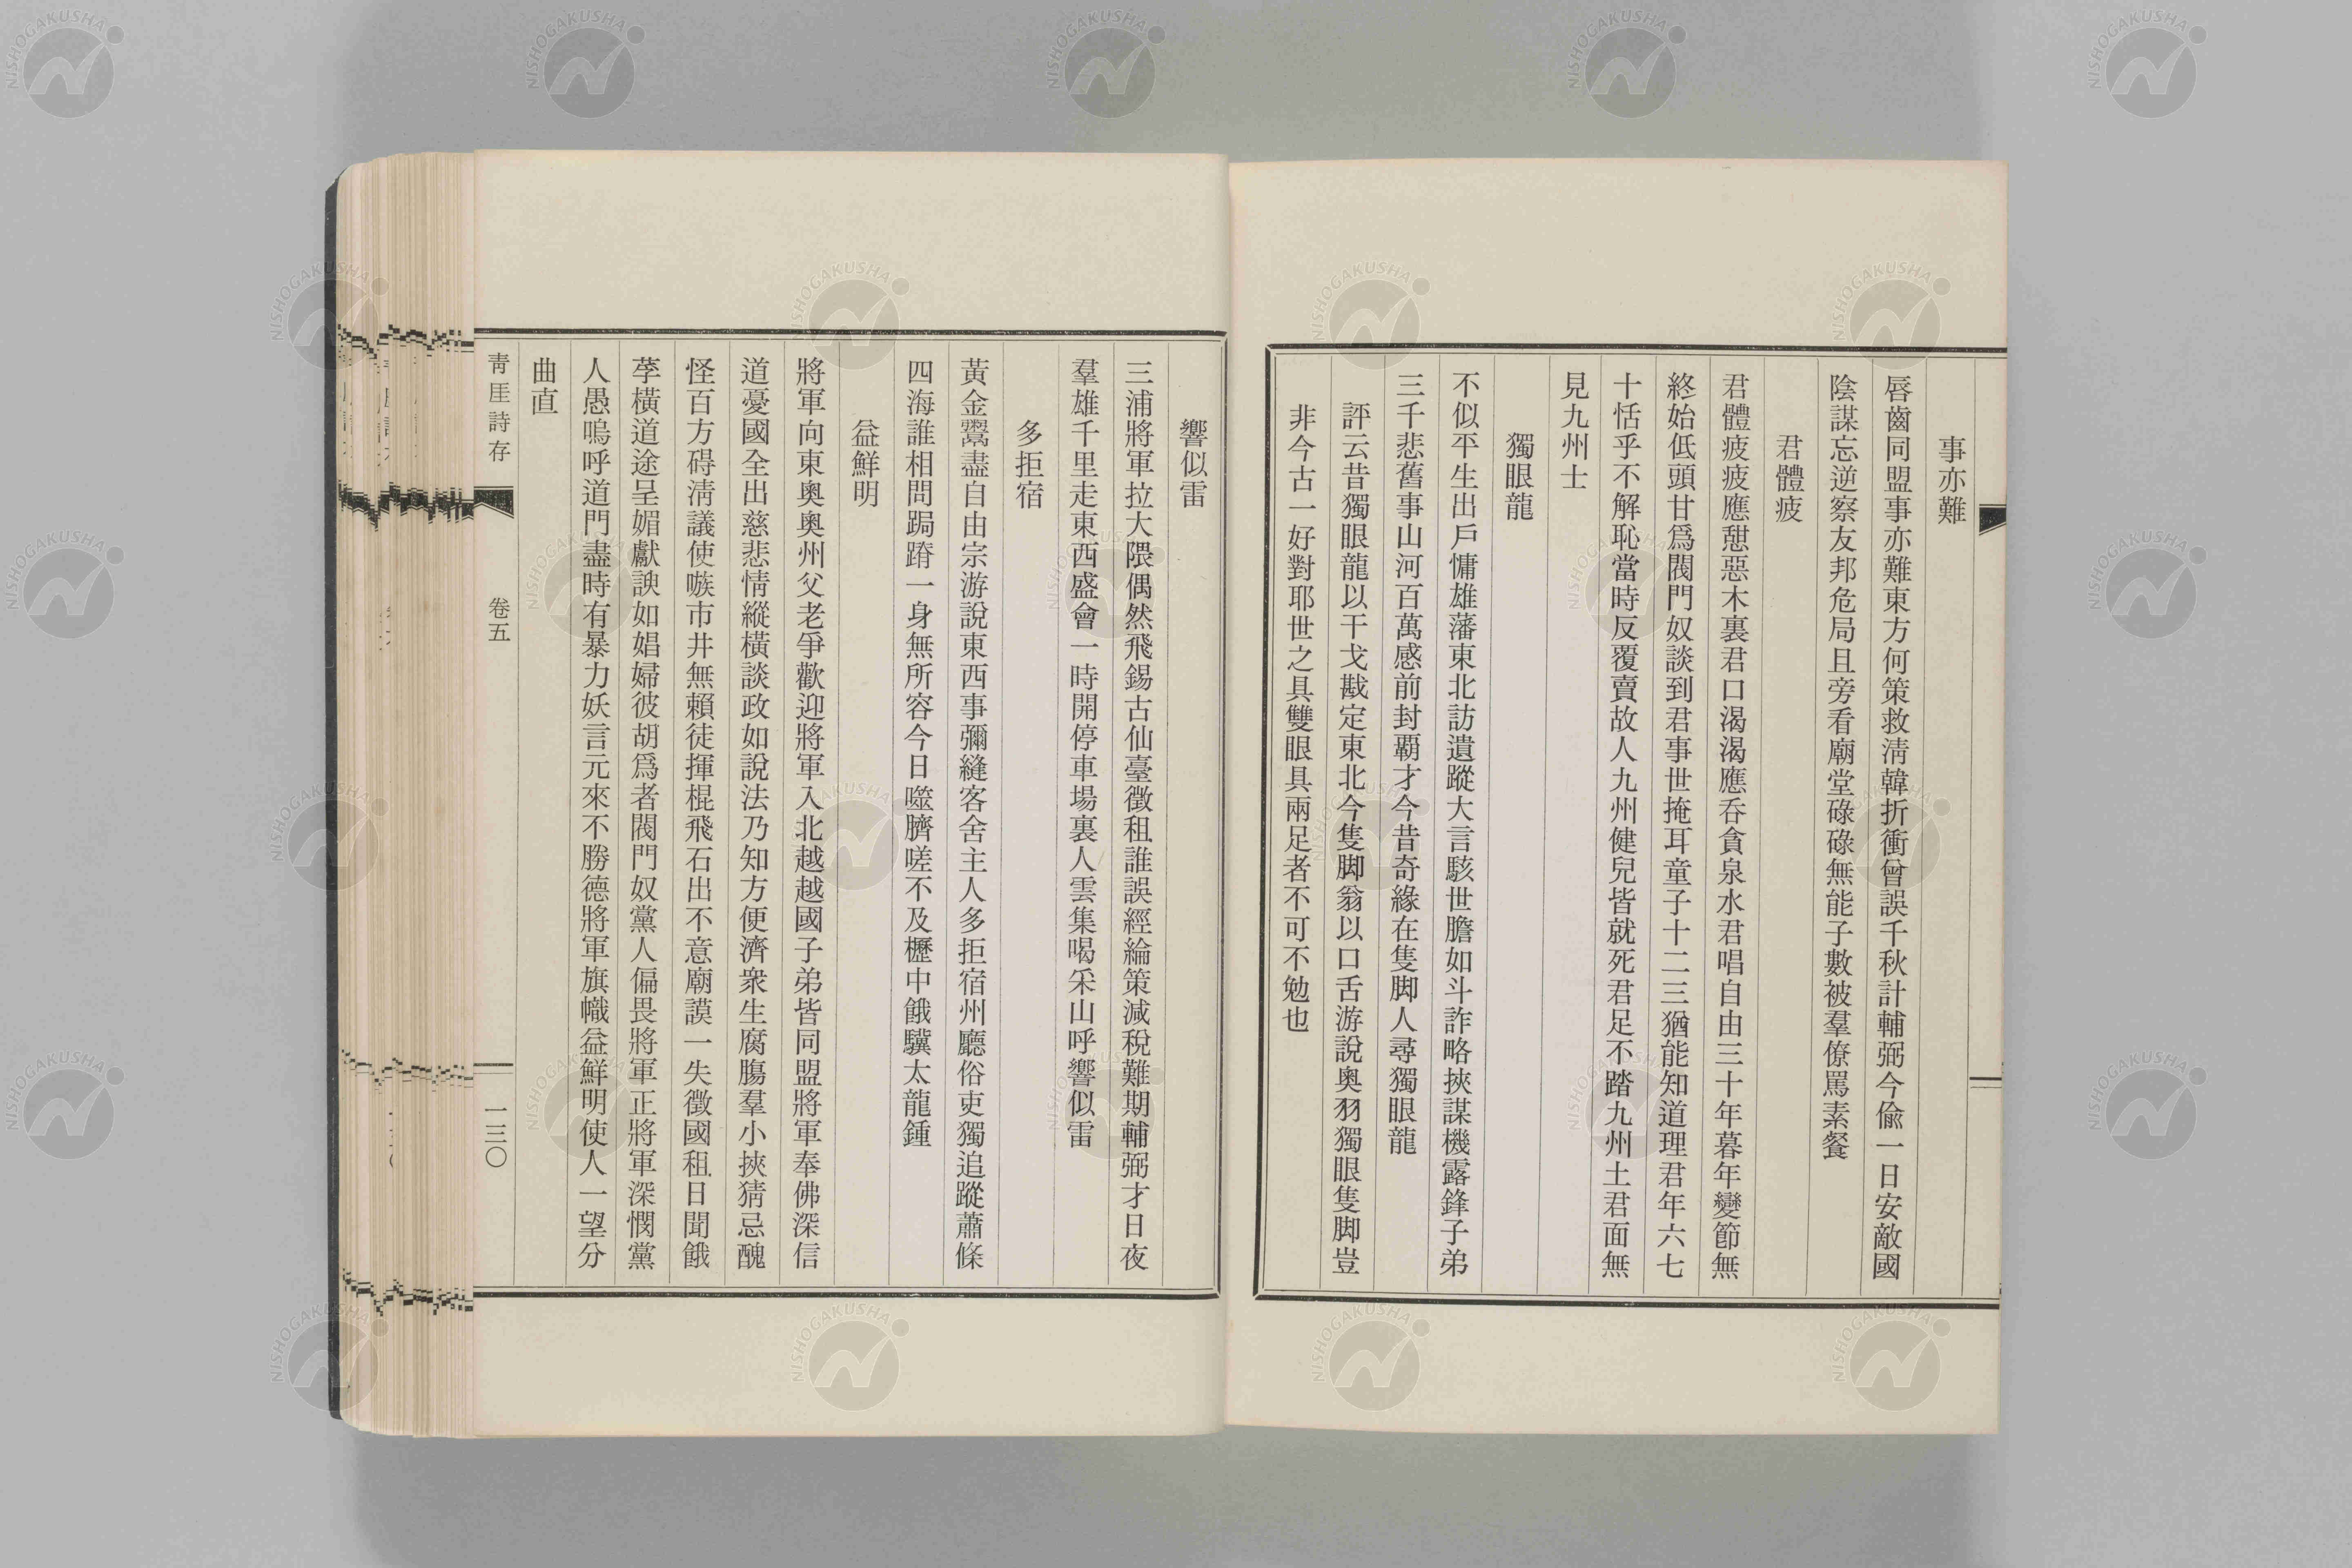 事亦難
唇齒同盟事亦難東方何策救淸韓折衝曾誤千秋計輔弼今偸一日安敵國
陰謀忘逆察友邦危局且旁看廟堂碌碌無能子數被羣僚罵素餐
君體疲
君體疲疲應憇惡木裏君口渴渴應呑貪泉水君唱自由三十年暮年變節無
終始低頭甘爲閥門奴談到君事世掩耳童子十二三猶能知道理君年六七
十恬乎不解恥當時反覆賣故人九州健兒皆就死君足不踏九州土君面無
見九州士
獨眼龍
不似平生出戶慵雄藩東北訪遺蹤大言駭世膽如斗詐略挾謀機露鋒子弟
三千悲舊事山河百萬感前封覇才今昔奇緣在隻脚人尋獨眼龍
評云昔獨眼龍以干戈戡定東北今隻脚翁以口舌游說奧羽獨眼隻脚豈
非今古一好對耶世之具雙眼具兩足者不可不勉也
響似雷
三浦將軍拉大隈偶然飛錫古仙臺徵租誰誤經綸策減稅難期輔弼才日夜
羣雄千里走東西盛會一時開停車場裏人雲集喝采山呼響似雷
多拒宿
黃金鬻盡自由宗游說東西事彌縫客舍主人多拒宿州廳俗吏獨追蹤蕭條
四海誰相問跼蹐一身無所容今日噬臍嗟不及櫪中餓驥太龍鍾
益鮮明
將軍向東奧奧州父老爭歡迎將軍入北越越國子弟皆同盟將軍奉佛深信
道憂國全出慈悲情縱橫談政如說法乃知方便濟衆生腐膓羣小挾猜忌醜
怪百方碍淸議使嗾市井無賴徒揮棍飛石出不意廟謨一失徵國租日聞餓
莩橫道途呈媚獻諛如娼婦彼胡爲者閥門奴黨人偏畏將軍正將軍深憫黨
人愚嗚呼道門盡時有暴力妖言元來不勝德將軍旗幟益鮮明使人一望分
曲直
靑厓詩存
卷五
一三〇
NISHOGAKUSHA